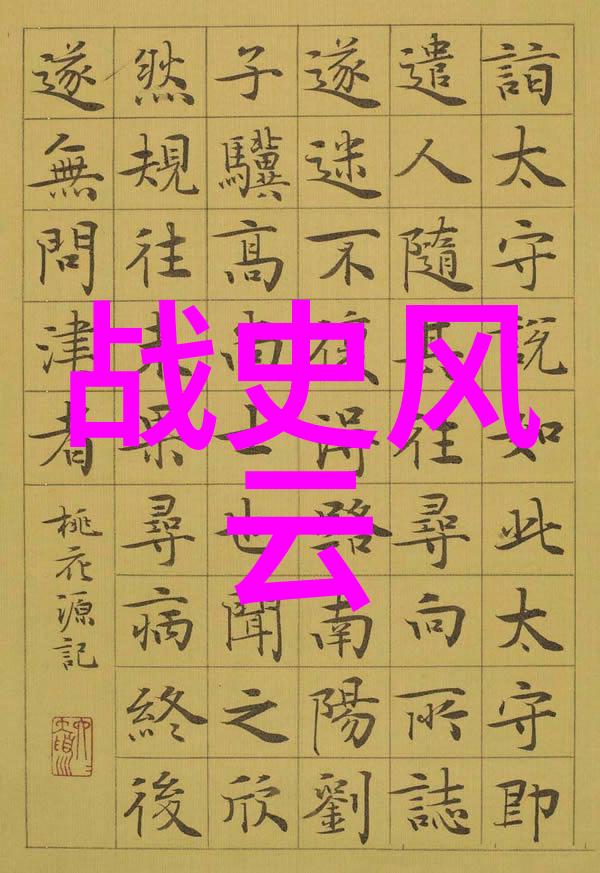 战史风
云
詣太守説如此太守即
遣人隨其往尋向所誌
遂迷不復得路南陽劉
子驥高尚士也聞之欣
然規往未果尋病終後
遂無問津者
桃花源記